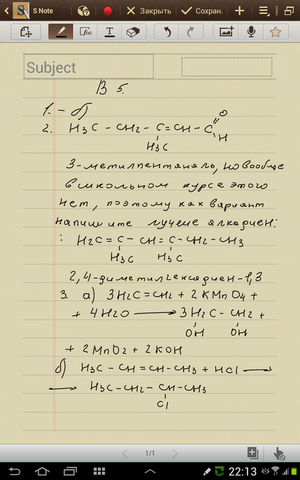 S Note
Закрыть
Сохран.
Subject
В 5.
1. – б)
2. H3C – CH2 – C = CH – C
O
H
H3C
3-метилпентаналь, но вообще
в школьном курсе этого
нет, поэтому как вариант
напишите лучше алкадиен:
: H2C = C – CH = C – CH2 – CH3
H3C H3C
2,4-диметилгексадиен-1,3
3. а) 3H2C = CH2 + 2KMnO4 +
+ 4H2O ⟶ 3H2C – CH2 +
OH OH
+ 2MnO2 + 2KOH
б) H3C – CH = CH – CH3 + HCl ⟶
⟶ H3C – CH2 – CH – CH3
Cl
1/1
22:13